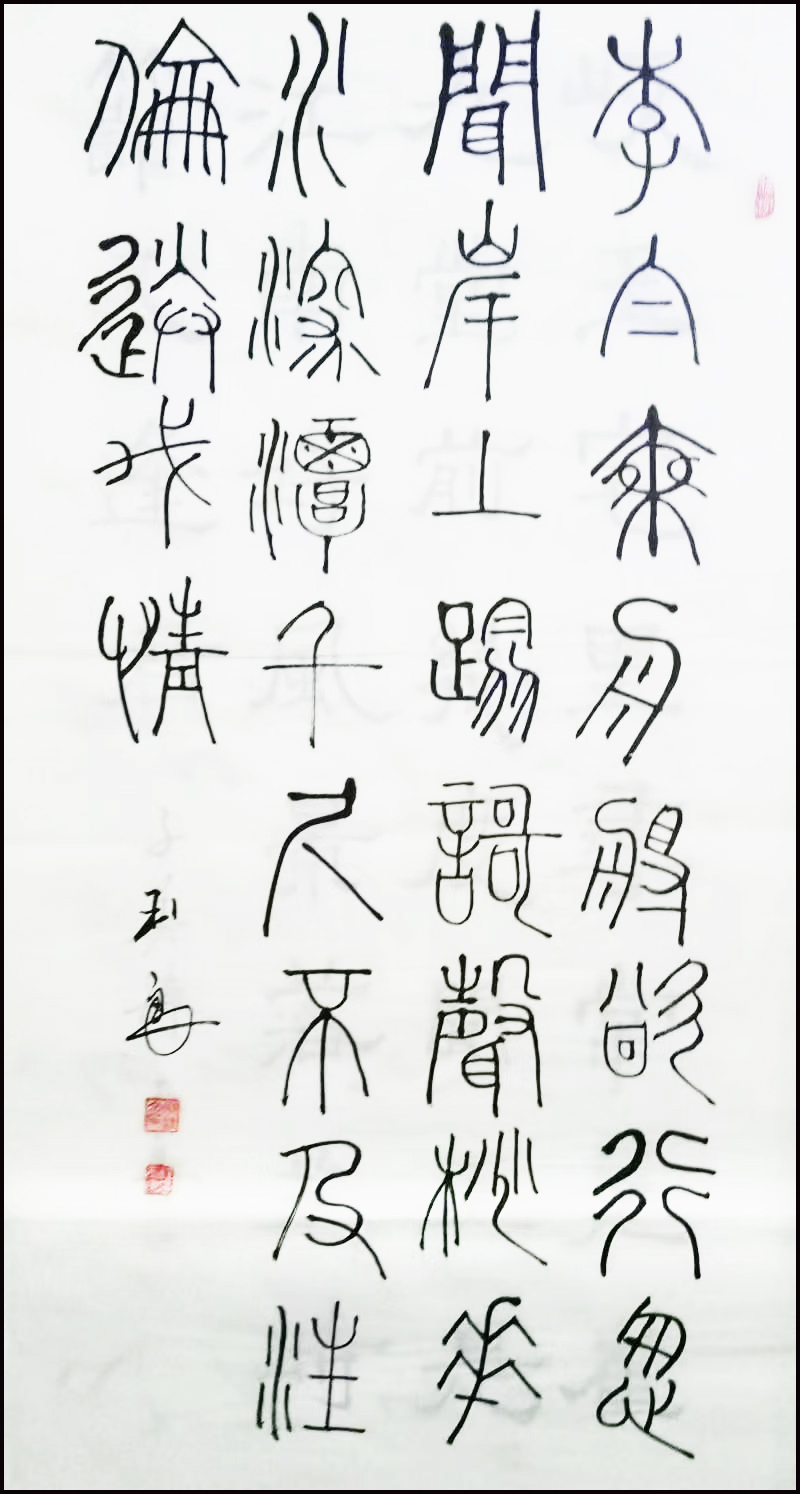 李白乘舟將欲行忽
聞岸上蹋謌聲桃花
水深潭千尺不及汪
倫送我情